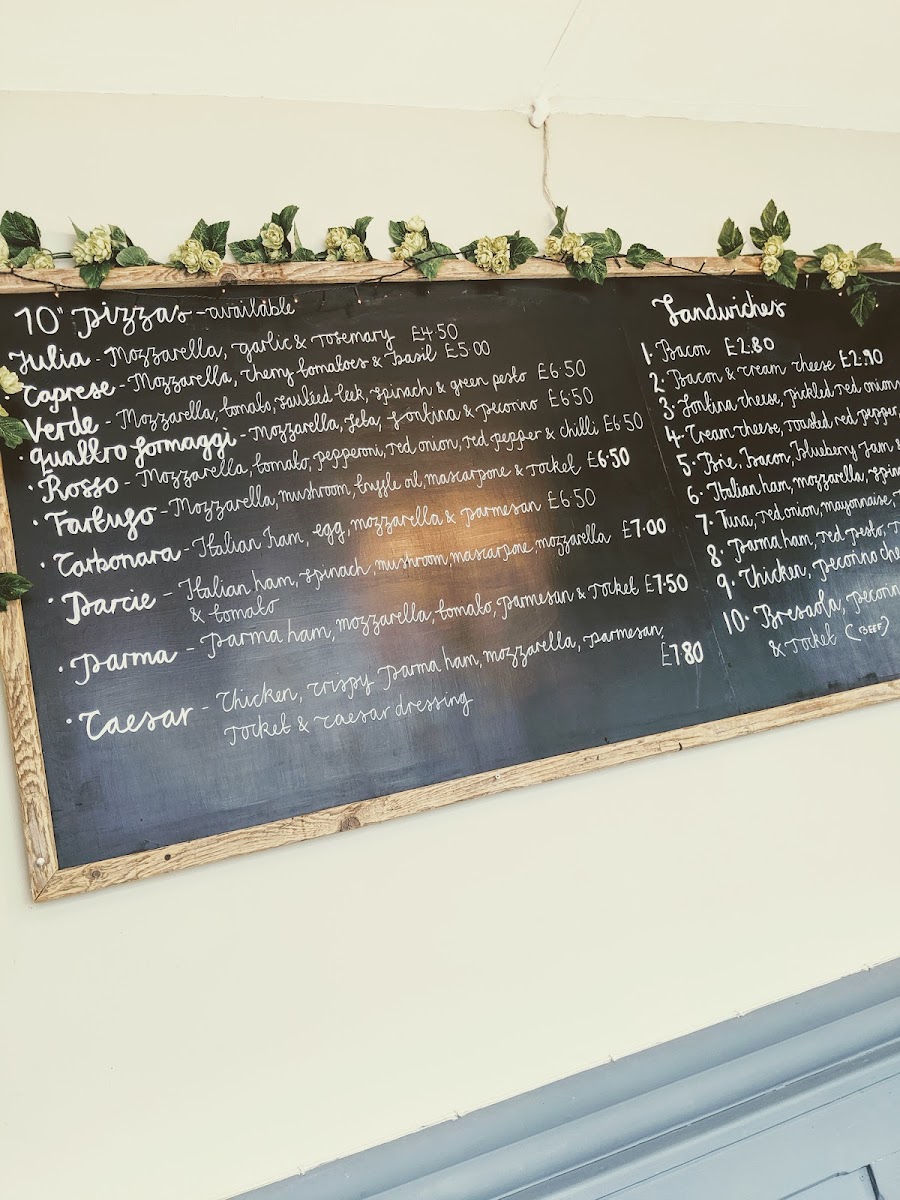 10" Pizzas - available
Julia - Mozzarella, garlic & rosemary £4.50
· Caprese - Mozzarella, cherry tomatoes & basil £5.00
Verde - Mozzarella, tomato, sauteed leek, spinach & green pesto £6.50
· Quattro formaggi - Mozzarella, feta, fontina & pecorino £6.50
· Rosso - Mozzarella, tomato, pepperoni, red onion, red pepper & chilli £6.50
· Tartufo - Mozzarella, mushroom, truffle oil, mascarpone & rocket £6.50
· Carbonara - Italian ham, egg, mozzarella & parmesan £6.50
· Darcie - Italian ham, spinach, mushroom, mascarpone, mozzarella £7.00
& tomato
· Parma - Parma ham, mozzarella, tomato, parmesan & rocket £7.50
· Caesar - Chicken, crispy Parma ham, mozzarella, parmesan, £7.80
rocket & caesar dressing
Sandwiches
1. Bacon £2.80
2. Bacon & cream cheese £2.90
3. Fontina cheese, pickled red onions
4. Cream cheese, roasted red pepper,
5. Brie, bacon, blueberry jam &
6. Italian ham, mozzarella, spin
7. Tuna, red onion, mayonnaise,
8. Parma ham, red pesto,
9. Chicken, pecorino che
10. Bresaola, pecorin
& rocket (BEEF)